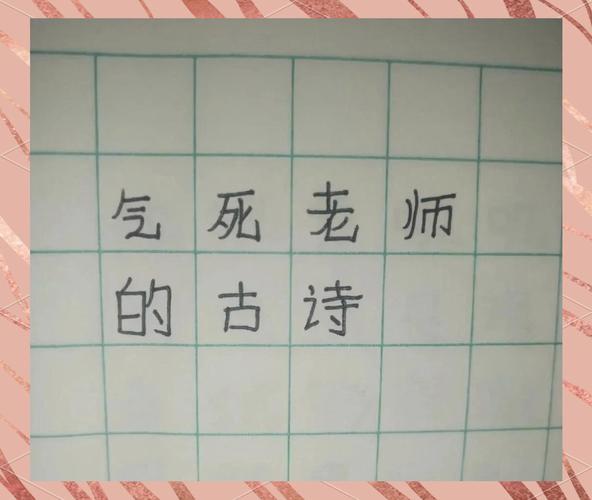 气死老师
的古诗